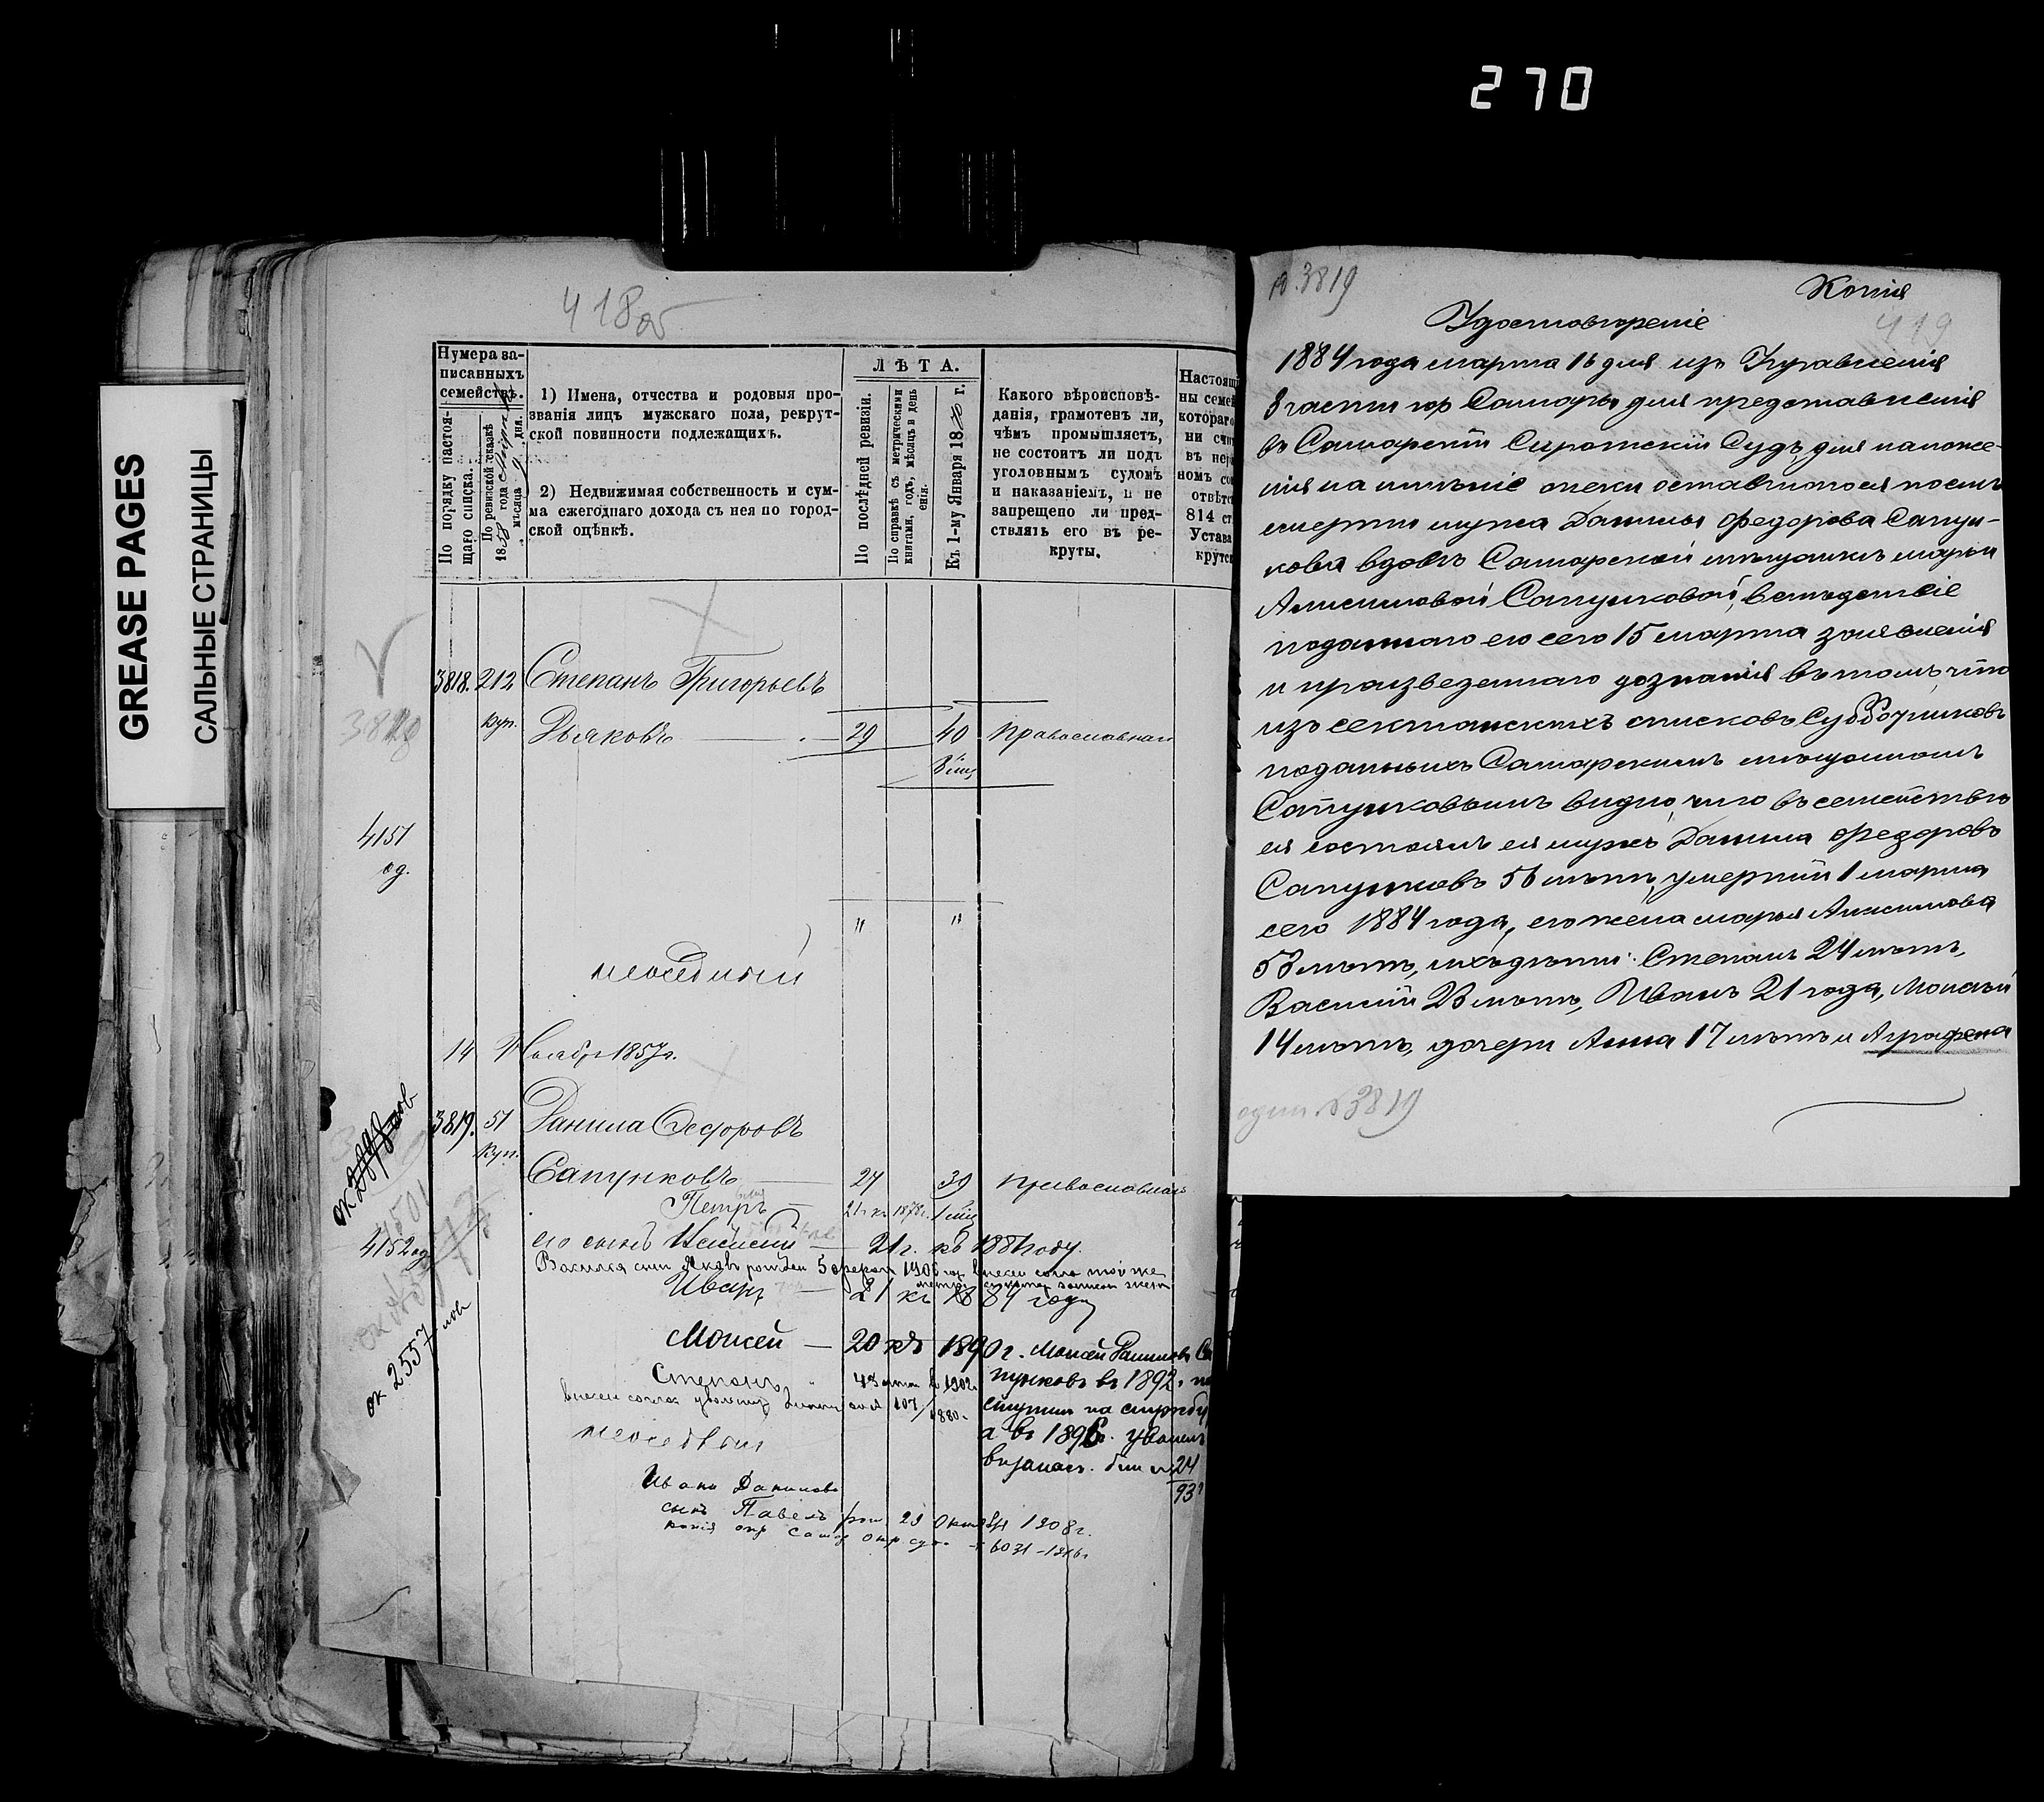 270
GREASE PAGES
САЛЬНЫЕ СТРАНИЦЫ
418об
Нумера за-
писанныхъ
семействъ.
По порядку настоя-
щаго списка.
По ревизской сказкѣ
1858 года
мѣсяца дня.
1) Имена, отчества и родовыя про-
званія лицъ мужскаго пола, рекрут-
ской повинности подлежащихъ.
2) Недвижимая собственность и сум-
ма ежегоднаго дохода съ нея по город-
ской оцѣнкѣ.
ЛѢТА.
По послѣдней ревизіи.
По справкѣ съ метрическими
книгами, годъ, мѣсяцъ и день
рожденія.
Къ 1-му Января 1870 г.
Какого вѣроисповѣ-
данія, грамотенъ ли,
чѣмъ промышляетъ,
не состоитъ ли подъ
уголовнымъ судомъ
и наказаніемъ, и не
запрещено ли пред-
ствлять его въ ре-
круты.
Настоящ
ны семей
котораго
ни счит
въ
ном
отвѣтс
814 ст
Устава
крутс
3818. 212 Степанъ Григорьевъ
Куп. Дьяковъ — 29 40 православнаго
4151
од.
" "
неоседлый
14 Ноября 1857г.
3819. 51 Данила Ѳедоровъ
Куп.
Сапунковъ — 27 39 православнаго
Петръ — 21 г. къ 1878г.
4152 од.
его сынъ Василій — 21 г. къ 1881 году.
Василія сынъ Яковъ рожден 5 феврал 1906
Иванъ — 21 къ 1884 году
Моисей — 20 къ 1890 г. Моисей Даниловъ Са
Степанъ 1902г. пунковъ въ 1892 г. по
107/1880. ступилъ на службу
неоседлый а въ 1896г. уволенъ
ок 2557 нов
въ запасъ. бил №24
93г
Ивана Данилова
сынъ Павелъ рож. 29 Октября 1908г.
копія опр Самар окр суд. 6031-1916г
№.3819
Копія
419
Удостовѣреніе
1884 года марта 16 дня изъ Управленія
3 части гор Самары для представленія
въ Самарскій Сиротскій Судъ, для наложе-
нія на имѣніе опеки оставшагося послѣ
смерти мужа Данилы Федорова Сапун-
кова вдовѣ Самарской мѣщанкѣ Марьи
Анисимовой Сапунковой, вслѣдствіе
поданнаго ею сего 15 марта заявленія
и произведеннаго дознанія въ томъ, что
изъ сектанскихъ списковъ Субботниковъ
поданныхъ Самарскимъ мѣщаномъ
Сапунковымъ видно, что въ семействѣ
ея состоялъ ея мужъ Данила Федоровъ
Сапунковъ 56 лѣтъ, умершій 1 марта
сего 1884 года, его жена Марья Анисимова
53 лѣтъ, ихъ дѣти: Степанъ 24 лѣтъ,
Василій 23 лѣтъ, Иванъ 21 года, Моисей
14 лѣтъ, дочери Анна 17 лѣтъ и Аграфена
один. №3819